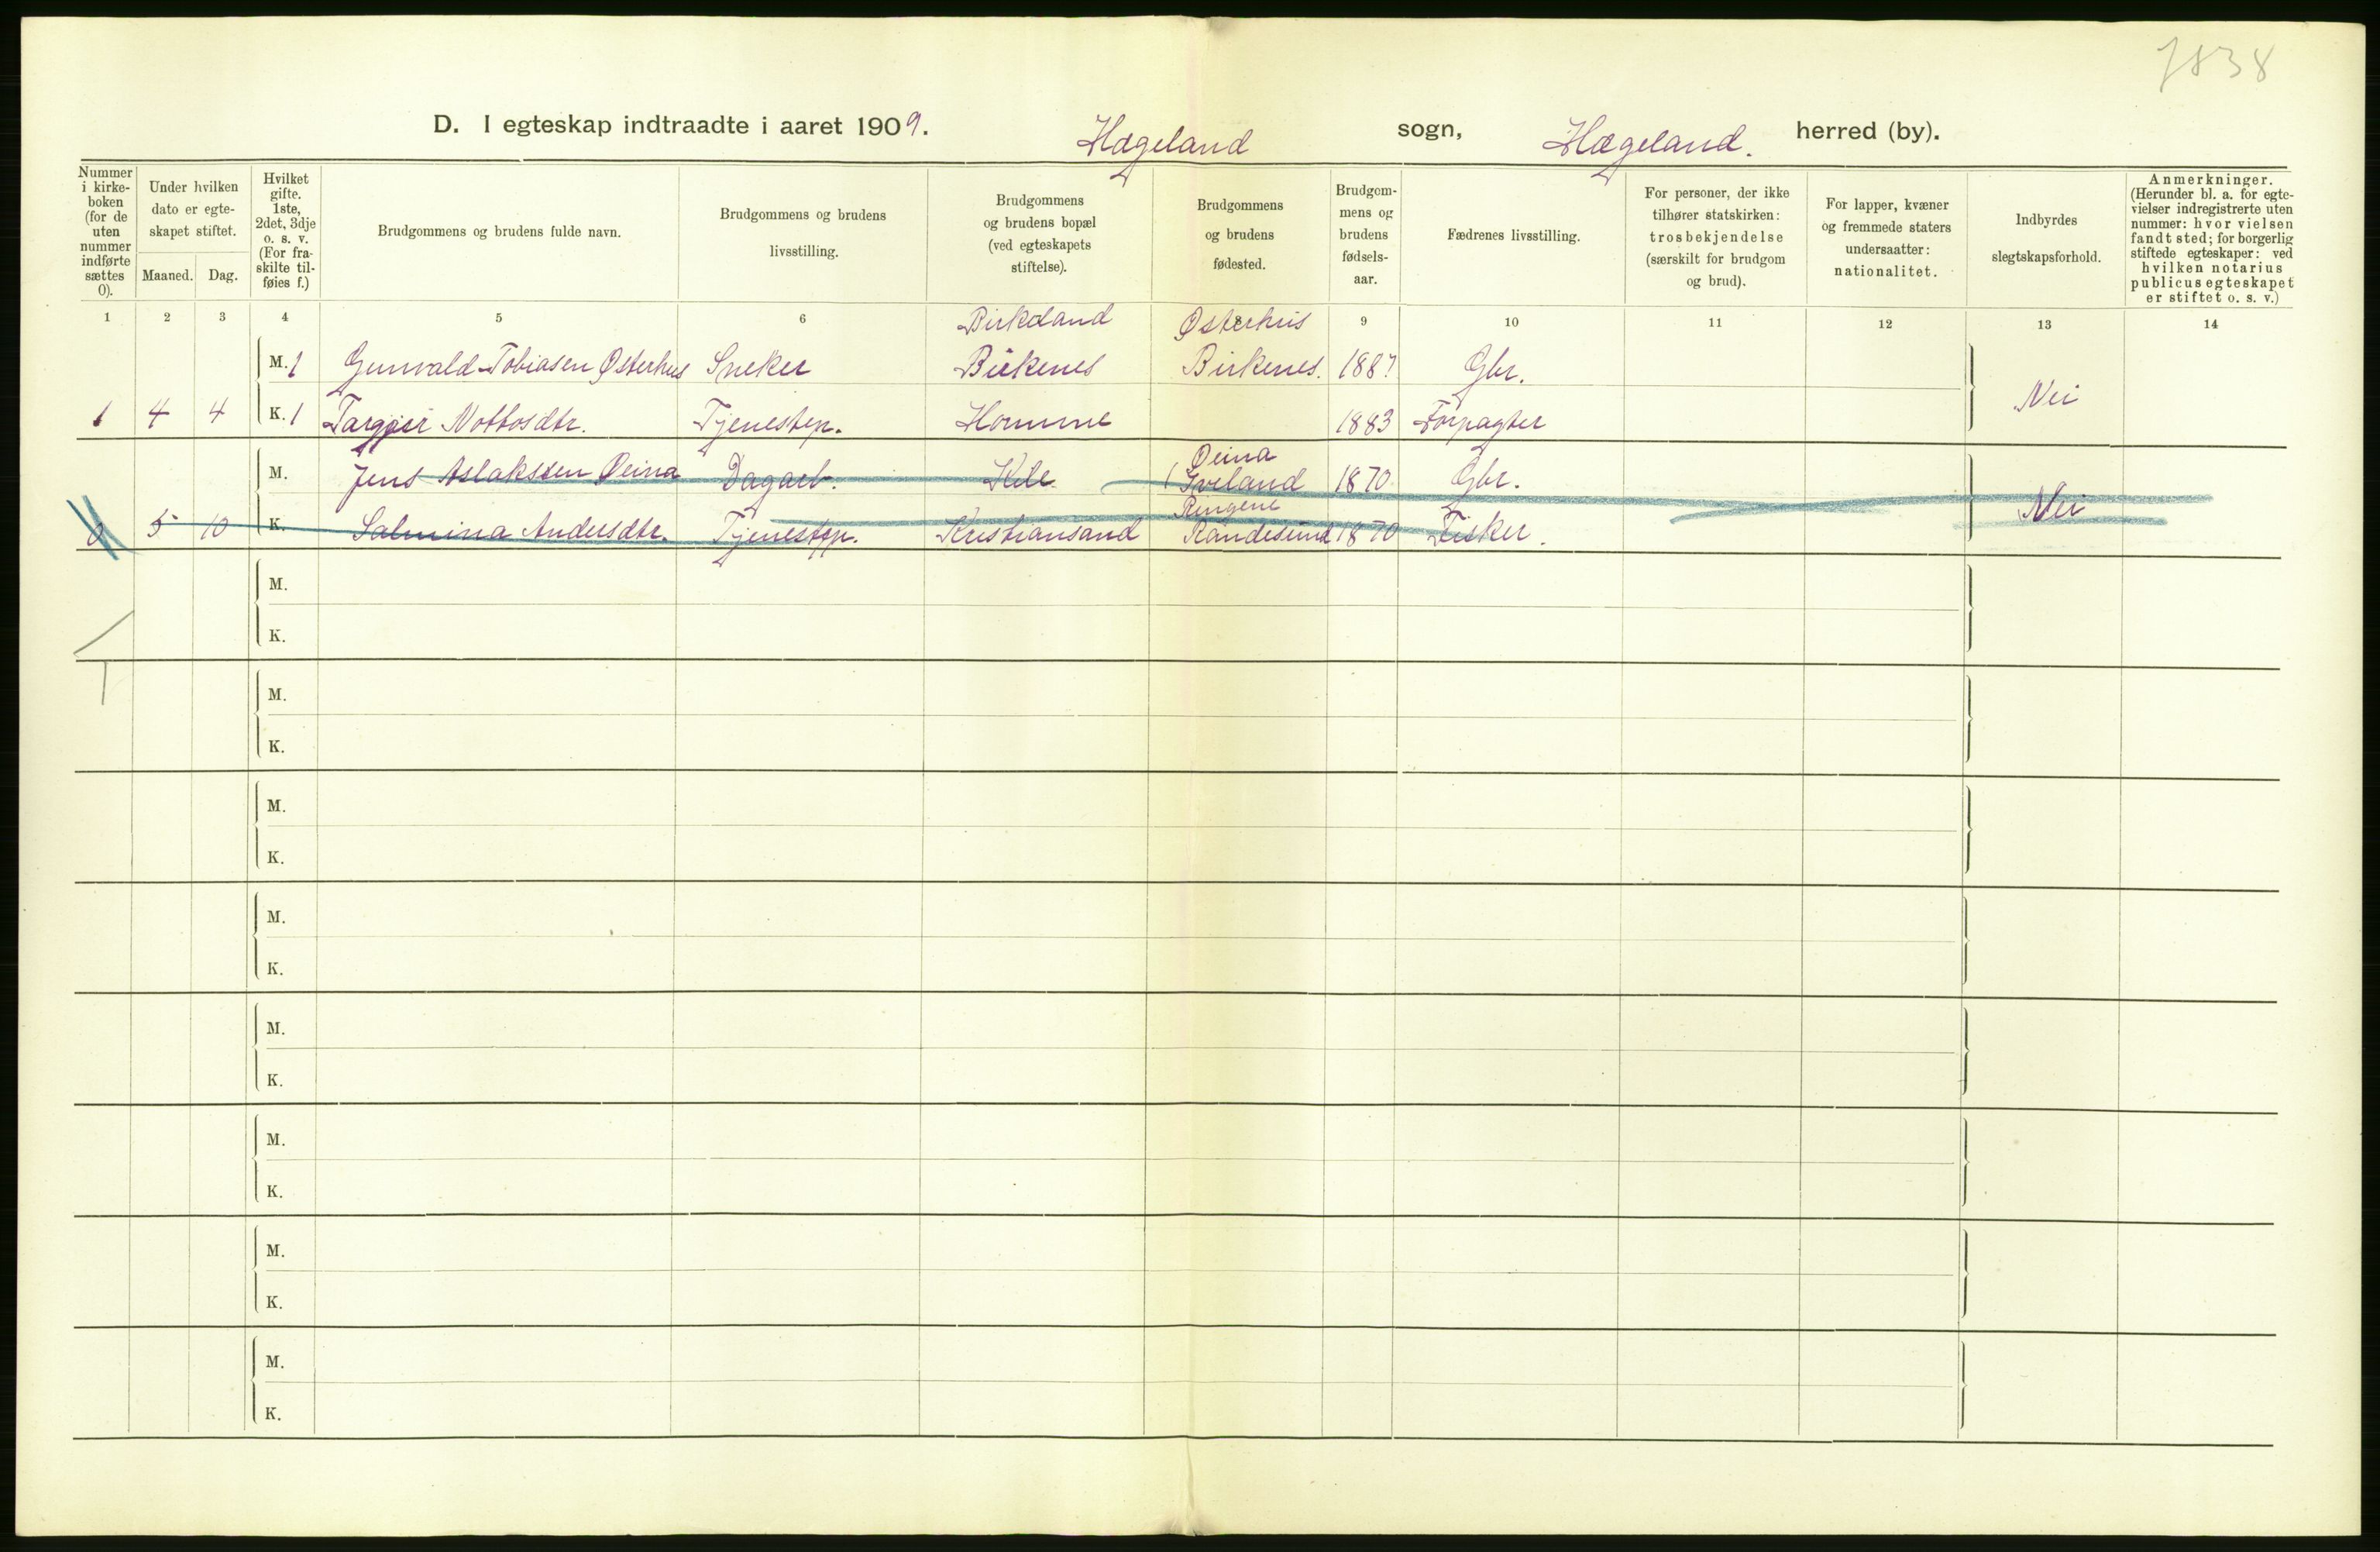 7838
D. I egteskap indtraadte i aaret 1909. Hægeland sogn, Hægeland. herred (by).
Nummer i kirke- boken (for de uten nummer indførte sættes 0).
Under hvilken dato er egte- skapet stiftet.
Maaned. Dag.
Hvilket gifte. 1ste, 2det, 3dje o. s. v. (For fra- skilte til- føies f.)
Brudgommens og brudens fulde navn.
Brudgommens og brudens livsstilling.
Brudgommens og brudens bopæl (ved egteskapets stiftelse).
Brudgommens og brudens fødested.
Brudgom- mens og brudens fødsels- aar.
Fædrenes livsstilling.
For personer, der ikke tilhører statskirken: trosbekjendelse (særskilt for brudgom og brud).
For lapper, kvæner og fremmede staters undersaatter: nationalitet.
Indbyrdes slegtskapsforhold.
Anmerkninger. (Herunder bl. a. for egte- vielser indregistrerte uten nummer: hvor vielsen fandt sted; for borgerlig stiftede egteskaper: ved hvilken notarius publicus egteskapet er stiftet o. s. v.)
1 2 3 4 5 6 7 8 9 10 11 12 13 14
Birkeland Østerhus
M. 1 Gunvald Tobiasen Østerhus Sneker Birkenes Birkenes. 1887 Gbr.
1 4 4 K. 1 Targjer Nottosdtr. Tjenestep. Homme 1883 Forpagter Nei
Øeina
M. Jens Aslaksen Øeina Dagarb. Kile Iveland 1870 Gbr.
Ringene
0 5 10 K. Salmina Andersdtr. Tjenestep. Kristiansand Randesund 1870 Fisker. Nei
M.
K.
M.
K.
M.
K.
M.
K.
M.
K.
M.
K.
M.
K.
M.
K.